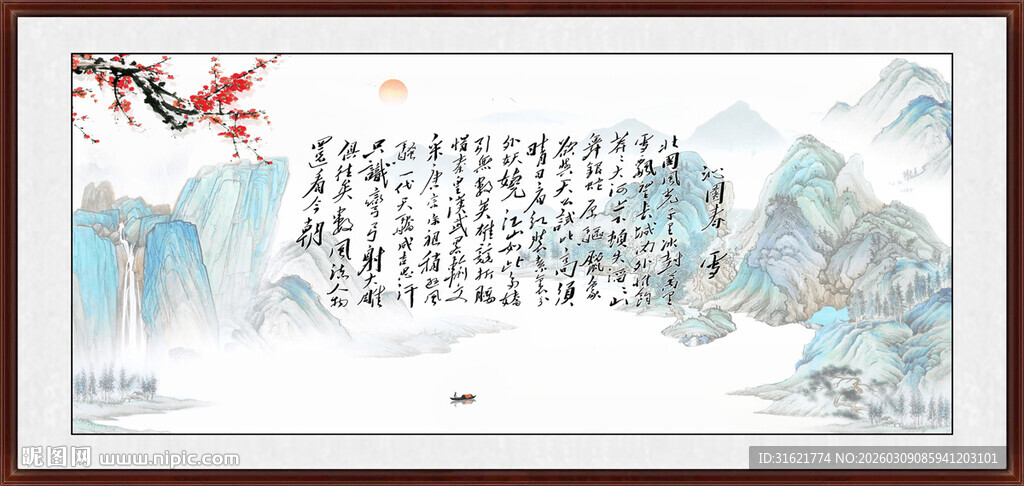 沁园春 雪
北国风光千里冰封万里
雪飘望长城内外惟余
莽莽大河上下顿失滔滔山
舞银蛇原驰蜡象
欲与天公试比高须
晴日看红装素裹分
外妖娆 江山如此多娇
引无数英雄竞折腰
惜秦皇汉武略输文
采唐宗宋祖稍逊风
骚一代天骄成吉思汗
只识弯弓射大雕
俱往矣数风流人物
还看今朝
昵图网 www.nipic.com
ID:31621774 NO:20260309085941203101